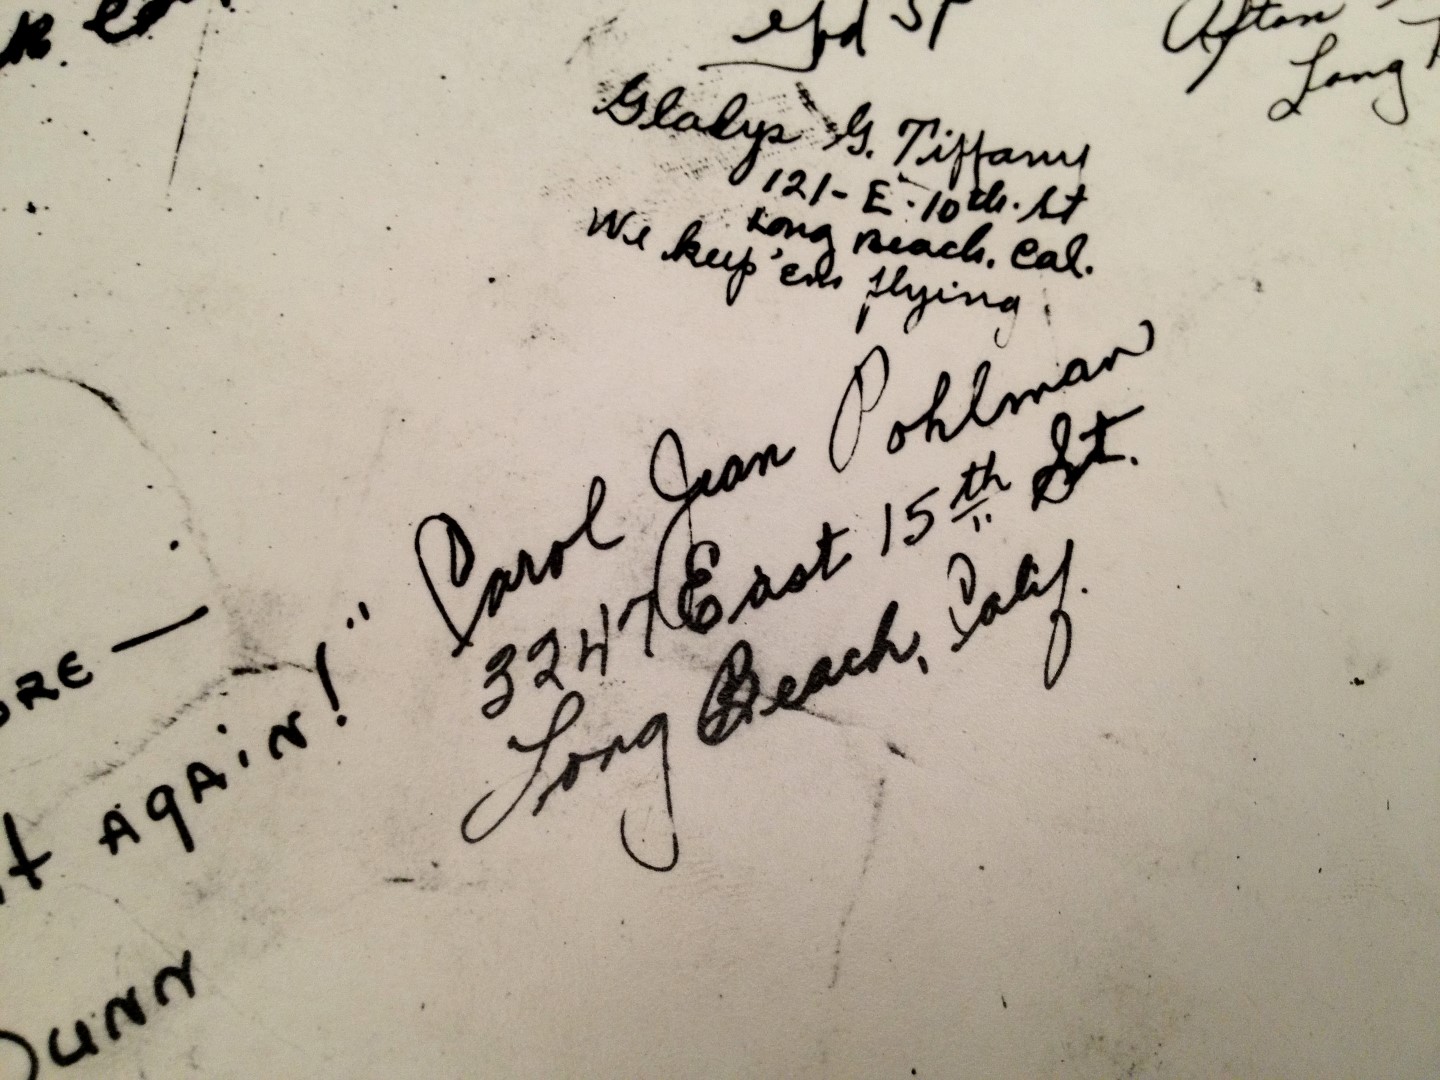 Afton
Long
Gladys G. Tiffany
121-E-10th. St
Long Beach. Cal.
We keep 'em flying
Carol Jean Pohlman
3247 East 15th St.
Long Beach, Calif.
ORE —
t AGAiN!"
DUNN